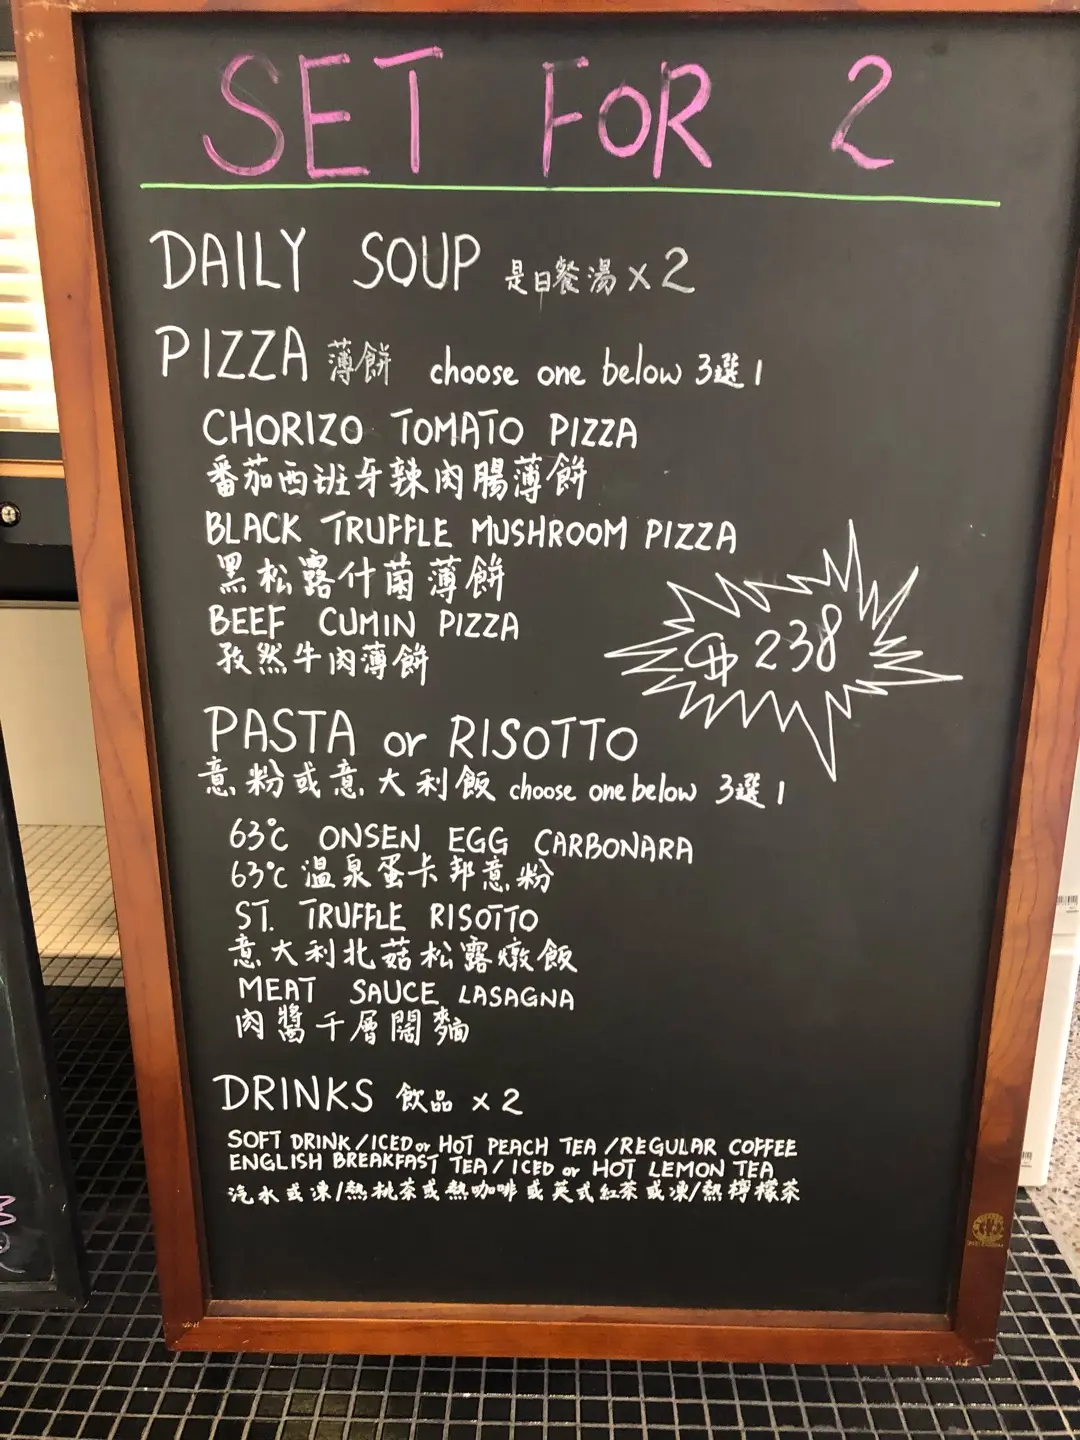 SET FOR 2
DAILY SOUP 是日餐湯 x 2
PIZZA 薄餅 choose one below 3選1
CHORIZO TOMATO PIZZA
番茄西班牙辣肉腸薄餅
BLACK TRUFFLE MUSHROOM PIZZA
黑松露什菌薄餅
BEEF CUMIN PIZZA
孜然牛肉薄餅
$238
PASTA or RISOTTO
意粉或意大利飯 choose one below 3選1
63℃ ONSEN EGG CARBONARA
63℃ 温泉蛋卡邦意粉
ST. TRUFFLE RISOTTO
意大利北菇松露燉飯
MEAT SAUCE LASAGNA
肉醬千層闊麵
DRINKS 飲品 x 2
SOFT DRINK/ICED or HOT PEACH TEA/REGULAR COFFEE
ENGLISH BREAKFAST TEA/ICED or HOT LEMON TEA
汽水或凍/熱桃茶或熱咖啡或英式紅茶或凍/熱檸檬茶